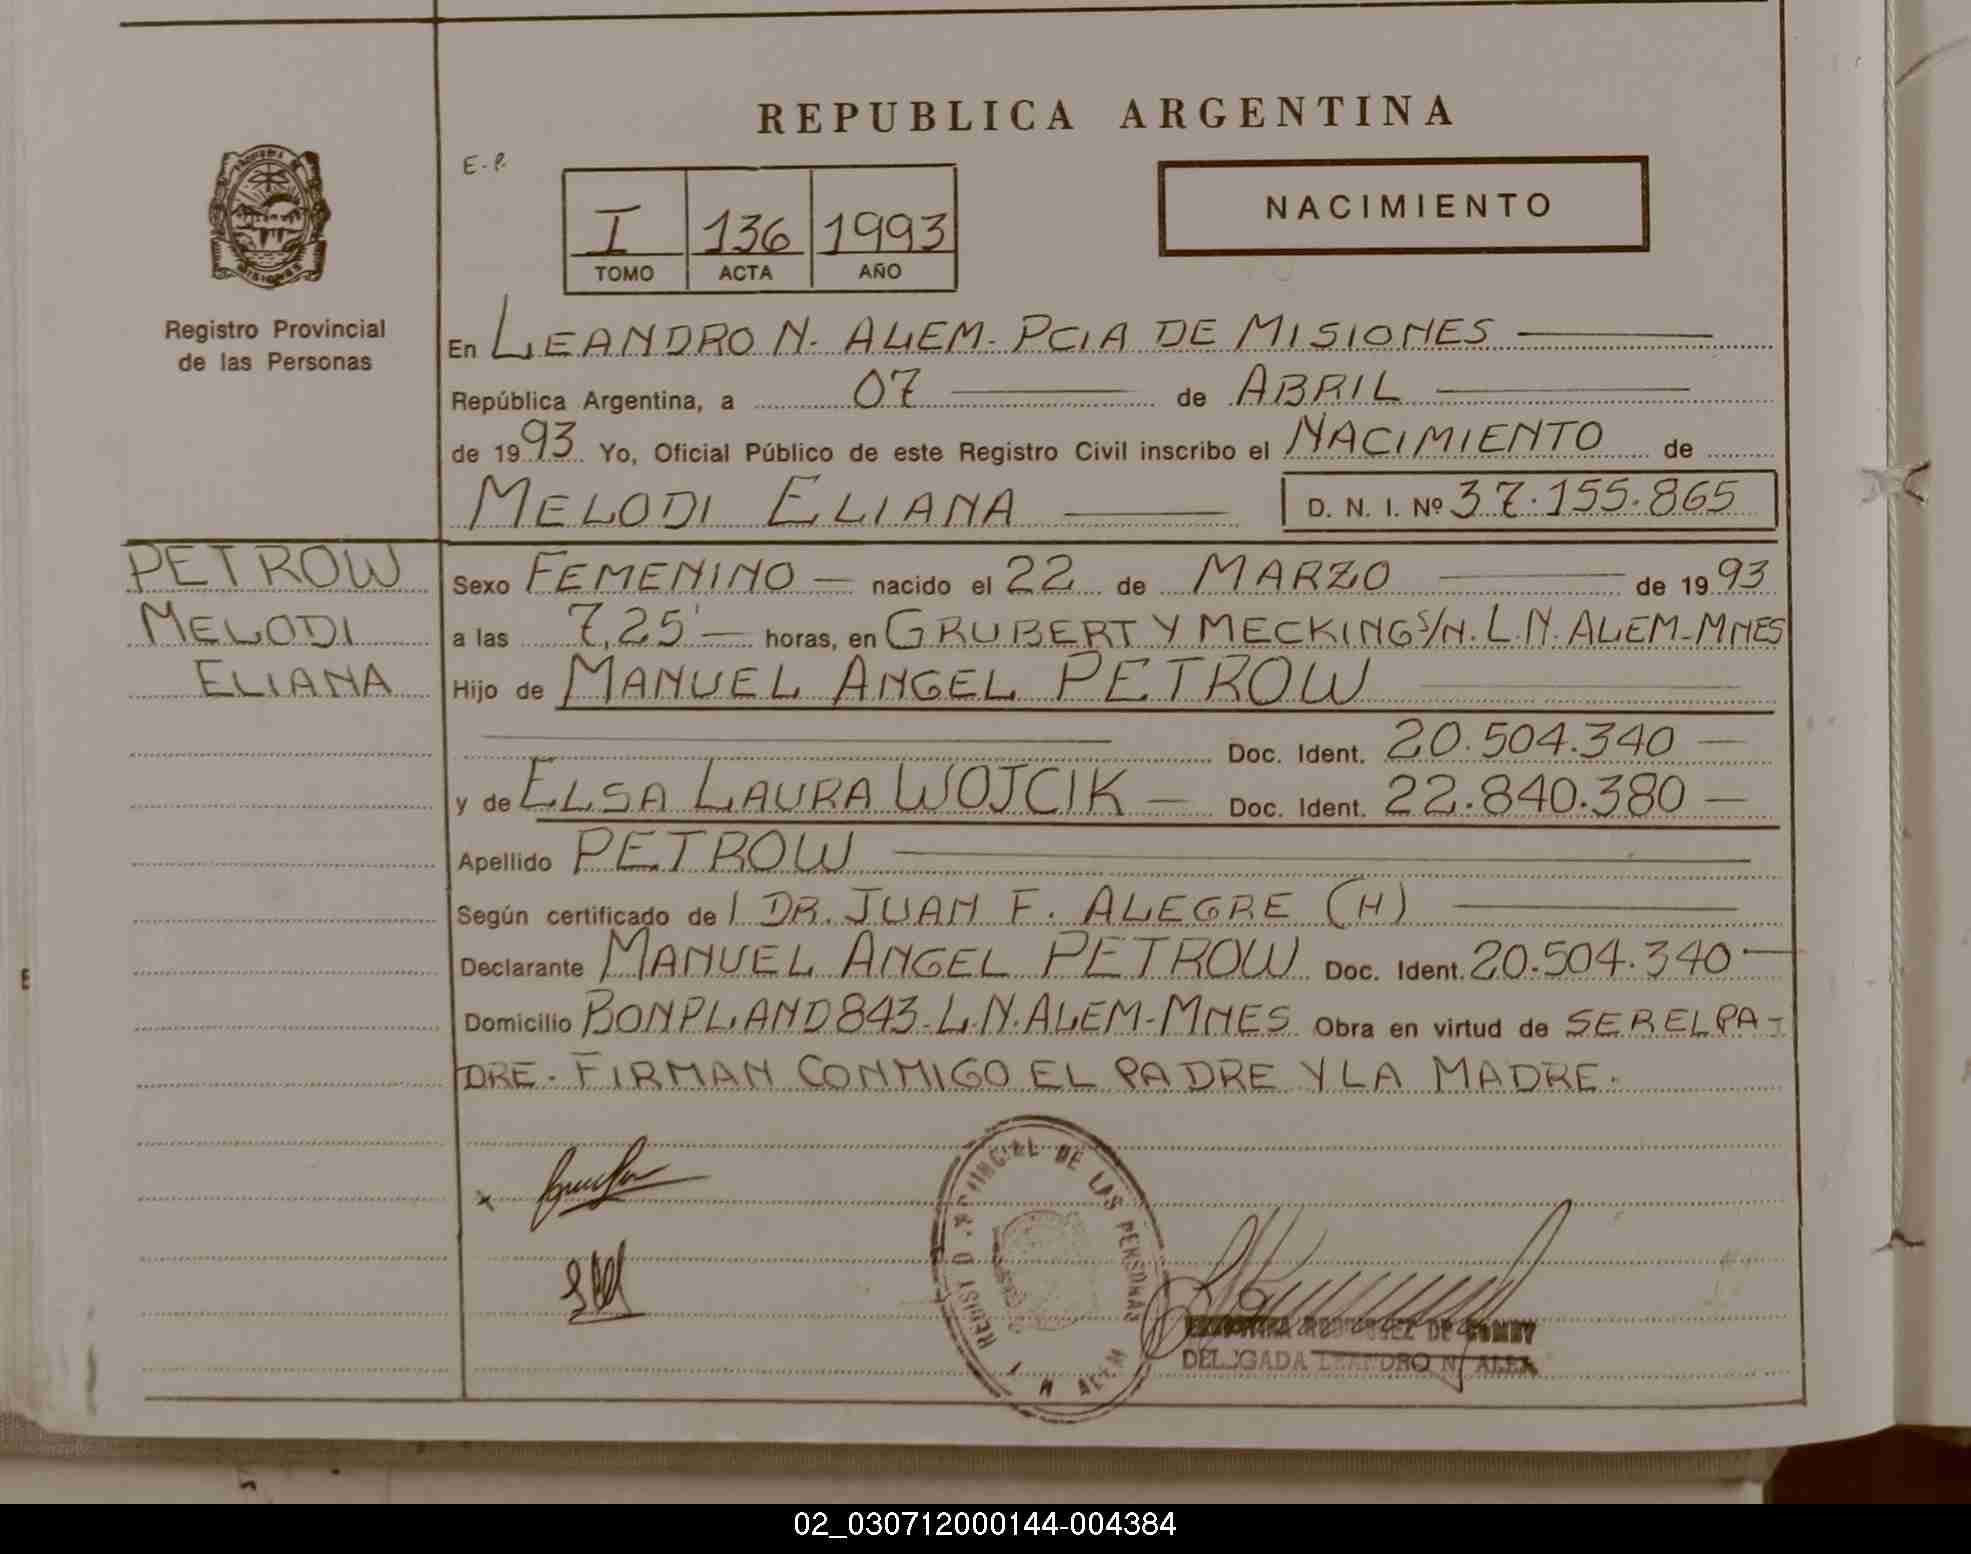 REPUBLICA ARGENTINA
E.P.
I 136 1993
TOMO ACTA AÑO
NACIMIENTO
MISIONES
Registro Provincial
de las Personas
En LEANDRO N. ALEM. PCIA DE MISIONES
República Argentina, a 07 de ABRIL
de 1993 Yo, Oficial Público de este Registro Civil inscribo el NACIMIENTO de
MELODI ELIANA D. N. I. Nº 37.155.865
PETROW
MELODI
ELIANA
Sexo FEMENINO nacido el 22 de MARZO de 1993
a las 7,25' horas, en GRUBERT Y MECKING S/N. L.N. ALEM-MNES
Hijo de MANUEL ANGEL PETROW
Doc. Ident. 20.504.340
y de ELSA LAURA WOJCIK Doc. Ident. 22.840.380
Apellido PETROW
Según certificado de DR. JUAN F. ALEGRE (H)
Declarante MANUEL ANGEL PETROW Doc. Ident. 20.504.340
Domicilio BONPLAND 843-L.N.ALEM-MNES Obra en virtud de SER EL PA-
DRE. FIRMAN CONMIGO EL PADRE Y LA MADRE.
REGISTRO PROVINCIAL DE LAS PERSONAS
N ALEM
RODRIGUEZ DE
DELEGADA LEANDRO N. ALEM
02_030712000144-004384